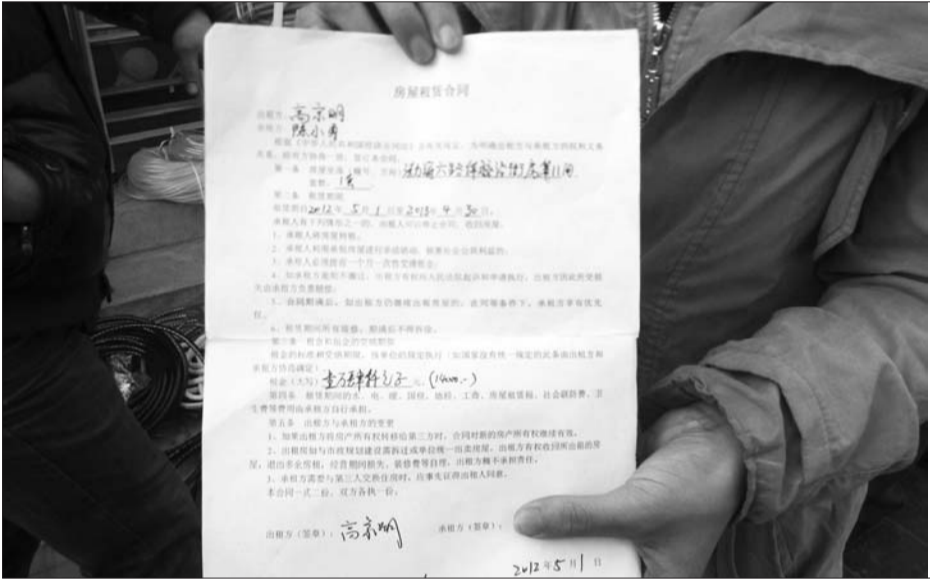 房屋租赁合同
出租方：高京明
承租方：陈小勇
根据《中华人民共和国经济合同法》及有关规定，为明确出租方与承租方的权利义务
关系，经双方协商一致，签订本合同。
第一条
套数、1套
第二条 租赁期限
租赁期自2012年5月1日至2013年4月30日。
承租人有下列情形之一的，出租人可以终止合同，收回房屋。
1、承租人将房屋转租。
2、承租人利用承租房屋进行非法活动，损害社会公共利益的。
3、承租人必须提前一个月一次性交清租金。
4、如承租方逾期不搬迁，出租方有权向人民法院起诉和申请执行，出租方因此所受损
失由承租方负责赔偿。
5、合同期满后，如出租方仍继续出租房屋的，在同等条件下，承租方享有优先
权。
6、租赁期间所有装修，期满后不得拆除。
第三条 租金和租金的交纳期限
租金的标准和交纳期限，按单位的规定执行（如国家没有统一规定的民条由出租方和
承租方协商确定）
租金（大写）壹万肆仟元 元，（14000.-）
第四条 租赁期间的水、电、暖、国税、地税、工商、房屋租赁税、社会联防费、卫
生费等费用由承租方自行承担。
第五条 出租方与承租方的变更
1、如果出租方将房产所有权转移给第三方时，合同对新的房产所有权继续有效。
2、出租房如与市政规划建设需拆迁或单位统一出卖房屋，出租方有权收回所出租的房
屋，退出多余房租，经营期间损失、装修费等自理，出租方概不承担责任。
3、承租方需要与第三人交换住房时，应事先征得出租人同意。
本合同一式二份，双方各执一份。
出租方（签章）：高京明 承租方（签章）：
2012年5月1日